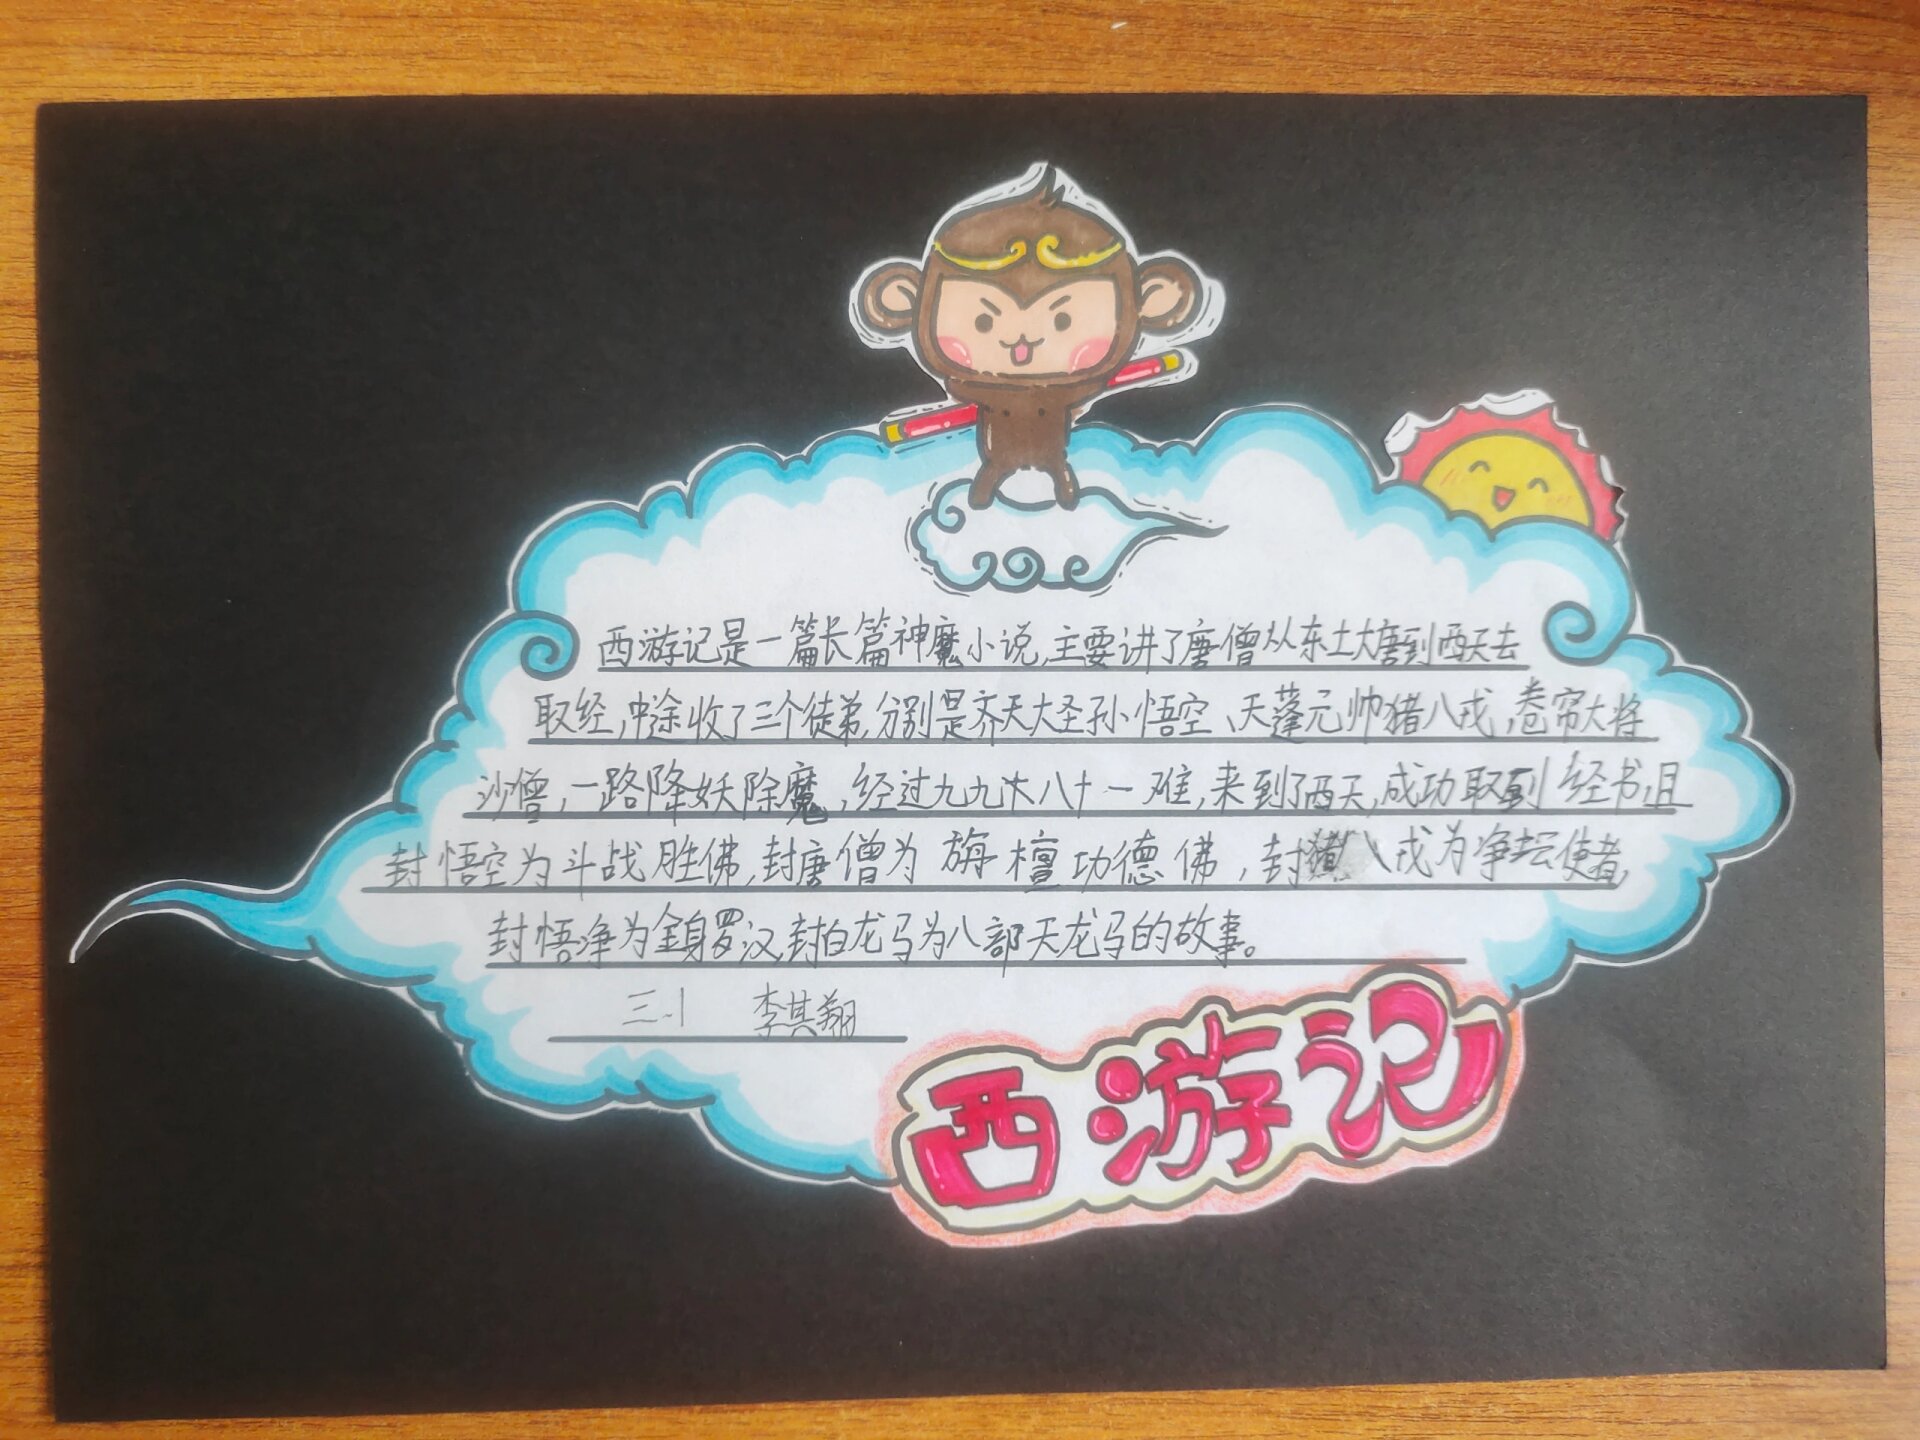 西游记是一篇长篇神魔小说,主要讲了唐僧从东土大唐到西天去
取经,中途收了三个徒弟,分别是齐天大圣孙悟空、天蓬元帅猪八戎,卷帘大将
沙僧,一路降妖除魔,经过九九六八十一难,来到了西天,成功取到经书,且
封悟空为斗战胜佛,封唐僧为旃檀功德佛,封猪八戎为净坛使者,
封悟净为金身罗汉,封白龙马为八部天龙马的故事。
三.1 李其翔
西游记